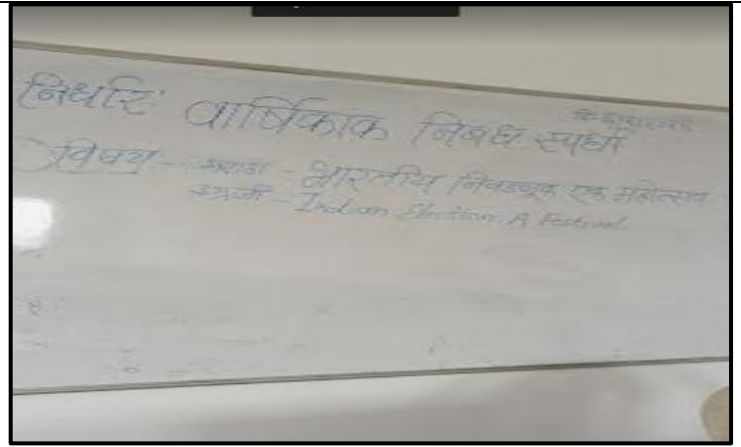 निर्धार वार्षिकांक निबंध स्पर्धा
विषय - मराठी - भारतीय निवडणूक एक महोत्सव
इंग्रजी - Indian Election A Festival